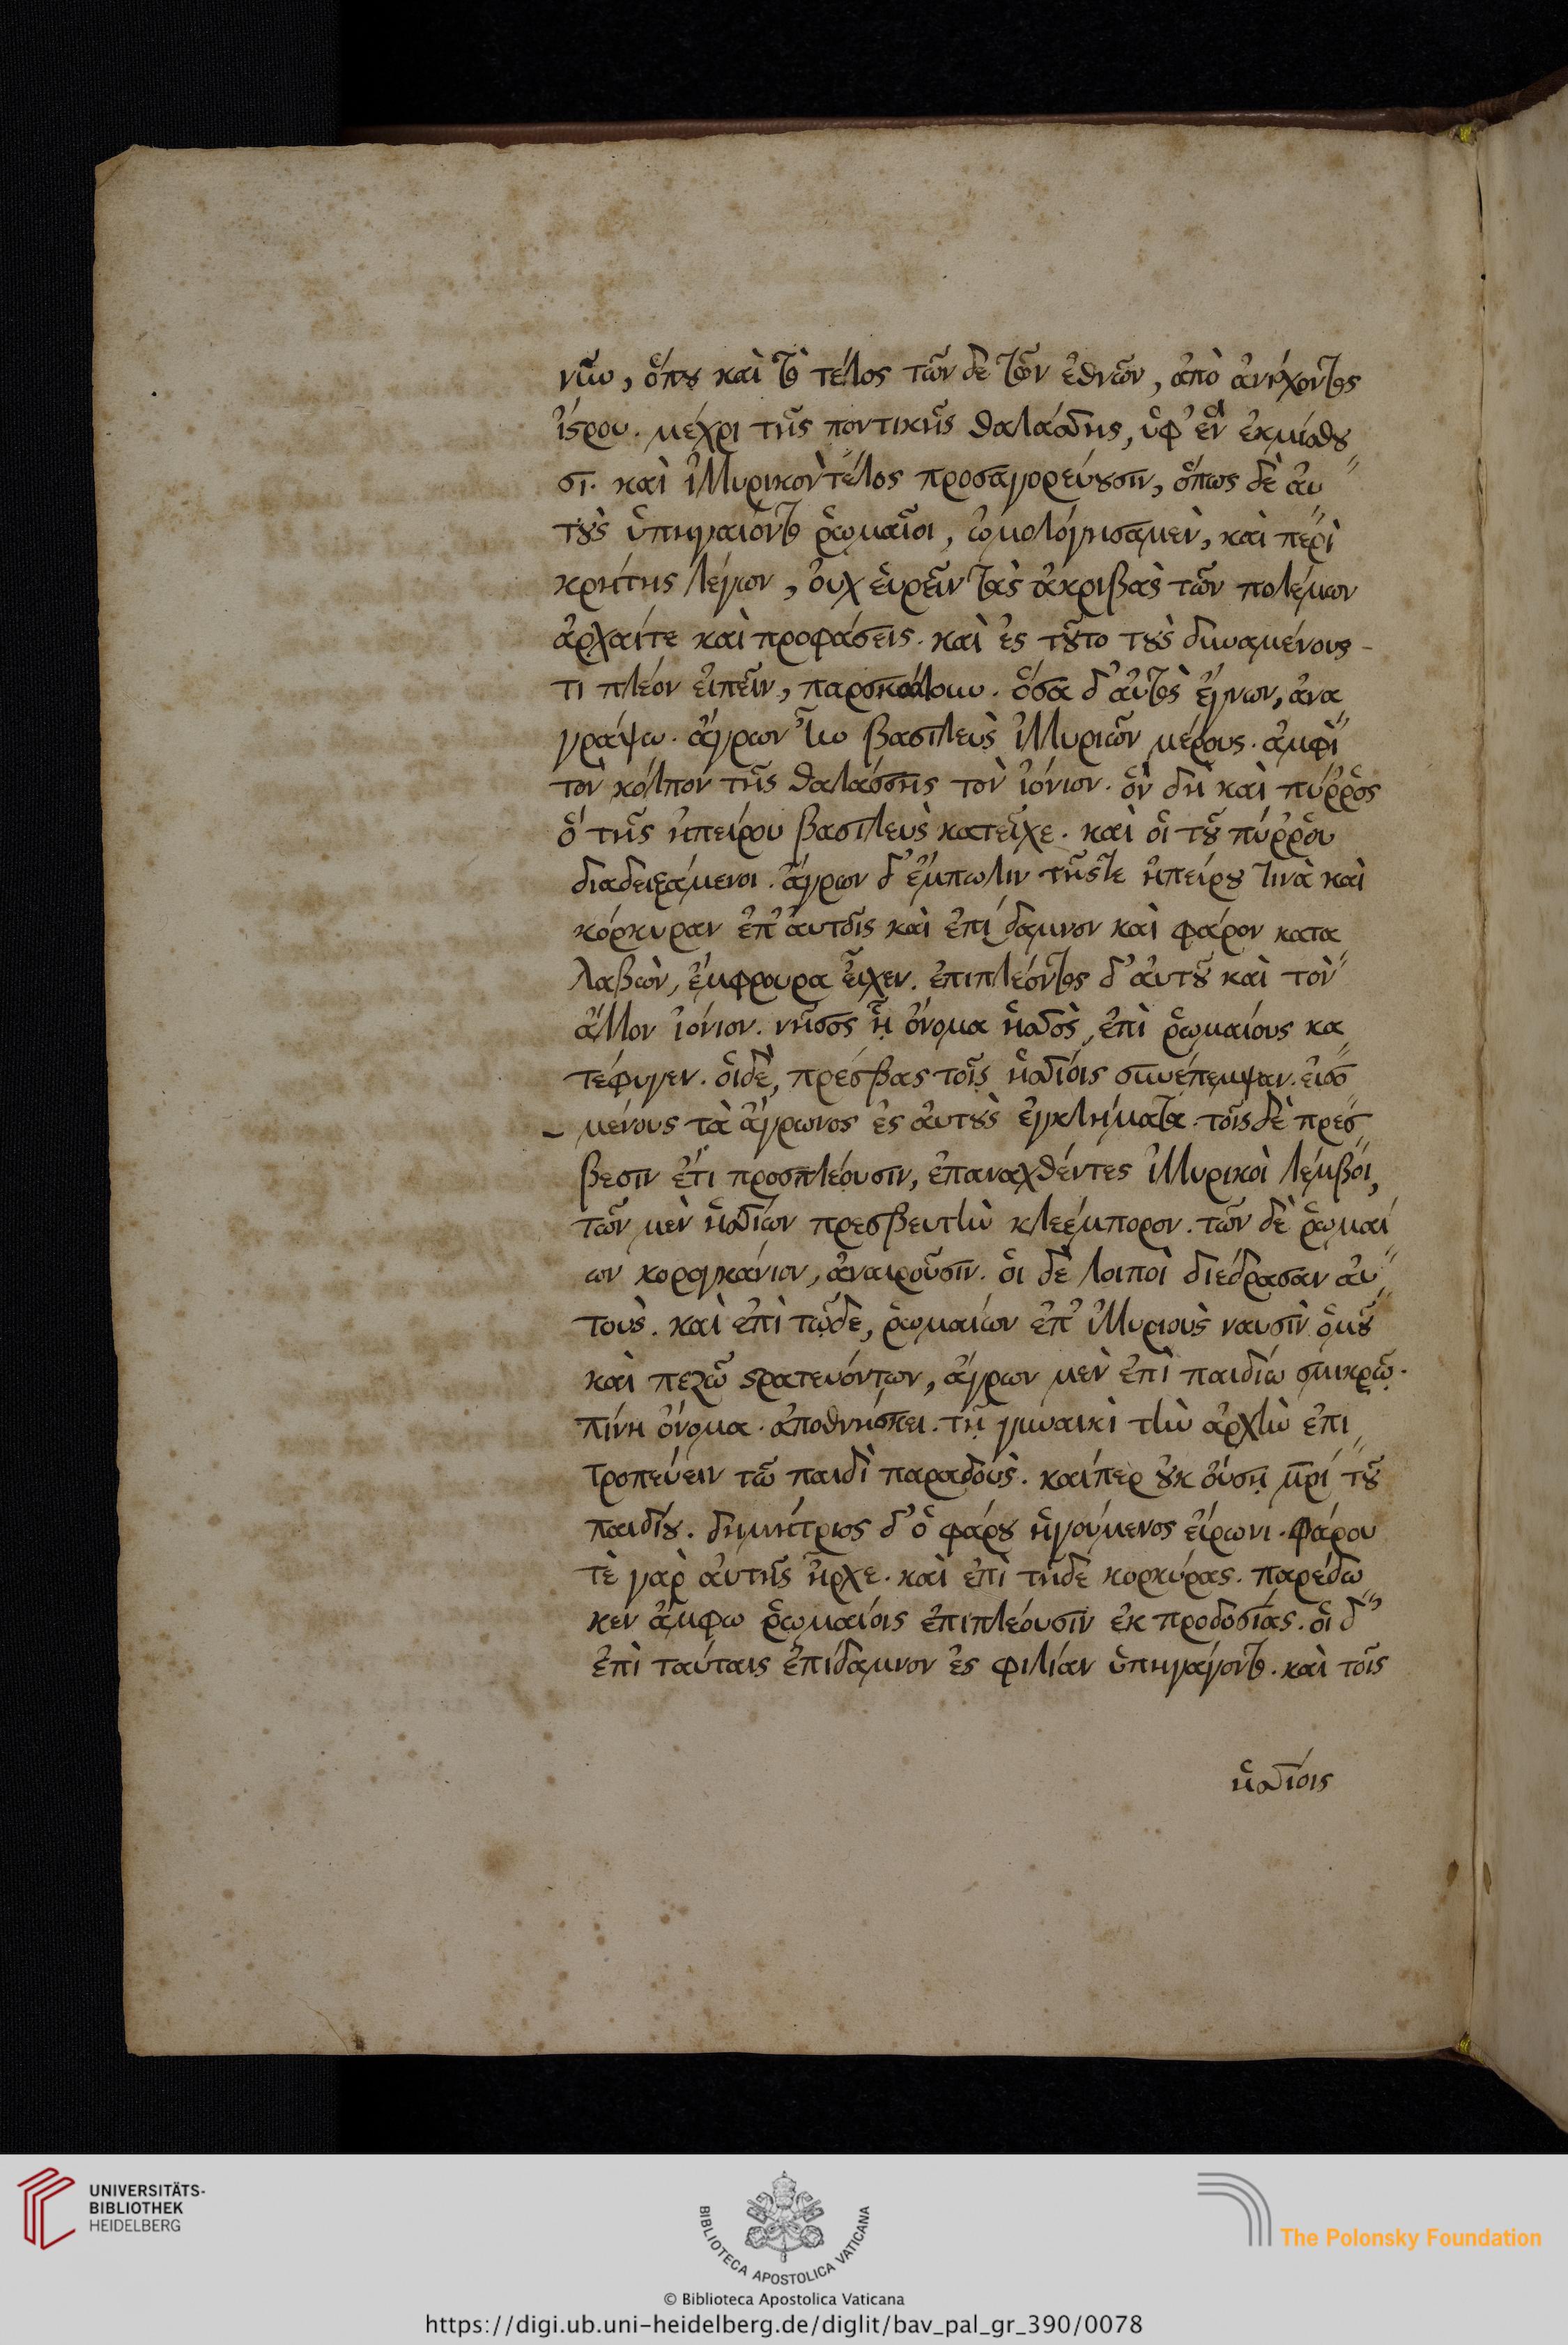 νῦν, ὅπου καὶ τὸ τέλος τῶν δε τῶν ἐθνῶν, ἀπὸ ἀνίχοντος
ἴστρου. μέχρι τῆς ποντικῆς θαλάσσης, ὑφ' ἓν ἐκμισθοῦ
σι. καὶ ἰλλυρικὸν τέλος προσαγορεύουσιν, ὅπως δὲ αὐ
τοὺς ὑπηγάγοντο ῥωμαῖοι, ὡμολόγησα μὲν, καὶ περὶ
κρήτης λέγων, οὐχ εὑρεῖν τὰς ἀκριβὰς τῶν πολέμων
ἀρχαίτε καὶ προφάσεις. καὶ ἐς τοῦτο τοὺς δυναμένους
τι πλέον εἰπεῖν, παρεκάλουν. ὅσα δ' αὐτὸς ἔγνων, ἀνα
γράψω. ἄγρων ἦν βασιλεὺς ἰλλυριῶν μέρους. ἀμφὶ
τὸν κόλπον τῆς θαλάσσης τὸν ἰόνιον. ὃν δὴ καὶ πύῤῥος
ὁ τῆς ἠπείρου βασιλεὺς κατεῖχε. καὶ οἱ τοῦ πύῤῥου
διαδεξάμενοι. ἄγρων δ' ἔμπωλιν τῆς τε ἠπείρου τινὰ καὶ
κόρκυραν ἐπ' αὐτοῖς καὶ ἐπίδαμνον καὶ φάρον κατα
λαβὼν, ἔμφρουρα εἶχεν. ἐπιπλέοντος δ' αὐτοῦ καὶ τὸν
ἄλλον ἰόνιον. νῆσος ᾗ ὄνομα ἡσσὸς, ἐπὶ ῥωμαίους κα
τέφυγεν. οἱ δὲ, πρέσβας τοῖς ἡσσίοις συνέπεμψαν. εἰσο
μένους τὰ ἄγρωνος ἐς αὐτοὺς ἐγκλήματα. τοῖς δὲ πρέσ
βεσιν ἔτι προσπλέουσιν, ἐπαναχθέντες ἰλλυρικοὶ λέμβοι,
τῶν μὲν ἡσσίων πρεσβευτὴν κλεέμπορον. τῶν δὲ ῥωμαί
ων κορογκάνιον, ἀναιροῦσιν. οἱ δὲ λοιποὶ διέδρασαν αὐ
τοὺς. καὶ ἐπὶ τῷδε, ῥωμαίων ἐπ' ἰλλυριοὺς ναυσὶν ὁμοῦ
καὶ πεζῷ στρατευόντων, ἄγρων μὲν ἐπὶ παιδίω σμικρῷ.
πίνη ὄνομα. ἀποθνήσκει. τῇ γυναικὶ τὴν ἀρχὴν ἐπι
τροπεύειν τῶ παιδὶ παραδοὺς. καίπερ οὐκ οὔσῃ μρί τοῦ
παιδίου. δημήτριος δ' ὁ φάρου ἡγούμενος εἴρωνι. φάρου
τὲ γὰρ αὐτῆς ἦρχε. καὶ ἐπὶ τῇδε κορκύρας. παρέδω
κεν ἄμφω ῥωμαίοις ἐπιπλέουσιν ἐκ προδοσίας. οἱ δ'
ἐπὶ ταύταις ἐπίδαμνον ἐς φιλίαν ὑπηγάγοντο. καὶ τοῖς
ἡσσίοις
UNIVERSITÄTS-
BIBLIOTHEK
HEIDELBERG
BIBLIOTECA APOSTOLICA VATICANA
The Polonsky Foundation
© Biblioteca Apostolica Vaticana
https://digi.ub.uni-heidelberg.de/diglit/bav_pal_gr_390/0078